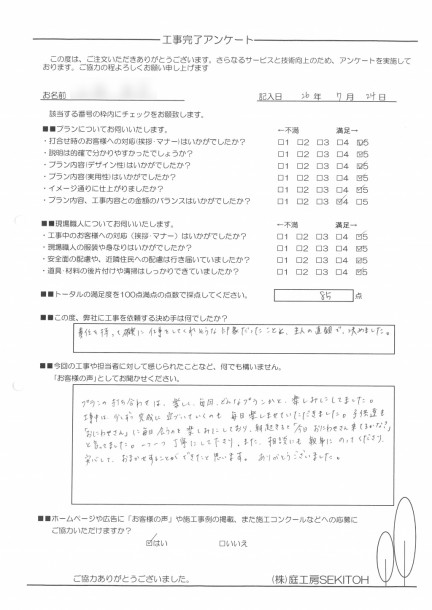 工事完了アンケート
この度は、ご注文いただきありがとうございます。さらなるサービスと技術向上のため、アンケートを実施して
おります。ご協力の程よろしくお願い申し上げます
お名前
記入日 26 年 7 月 24 日
該当する番号の枠内にチェックをお願致します。
■■プランについてお伺いいたします。 ←不満 満足→
・打合せ時のお客様への対応(挨拶・マナー)はいかがでしたか? □1 □2 □3 □4 ☑5
・説明は的確で分かりやすかったでしょうか? □1 □2 □3 □4 ☑5
・プラン内容(デザイン性)はいかがでしたか? □1 □2 □3 □4 ☑5
・プラン内容(実用性)はいかがでしたか? □1 □2 □3 □4 ☑5
・イメージ通りに仕上がりましたか? □1 □2 □3 □4 ☑5
・プラン内容、工事内容との金額のバランスはいかがでしたか? □1 □2 □3 ☑4 □5
■■現場職人についてお伺いいたします。 ←不満 満足→
・工事中のお客様への対応(挨拶・マナー)はいかがでしたか? □1 □2 □3 □4 ☑5
・現場職人の服装や身なりはいかがでしたか? □1 □2 □3 □4 ☑5
・安全面の配慮や、近隣住民への配慮は行き届いていましたか? □1 □2 □3 □4 ☑5
・道具・材料の後片付けや清掃はしっかりできていましたか? □1 □2 □3 □4 ☑5
■■トータルの満足度を100点満点の点数で採点してください。 85 点
■■この度、弊社に工事を依頼する決め手は何でしたか?
責任を持って確実に仕事をしてくれそうな印象だったことと、主人の直観で、決めました。
■■今回の工事や担当者に対して感じられたことなど、何でも構いません。
「お客様の声」としてお聞かせください。
プランの打ち合わせは、楽しく、毎回、どんなプランかと、楽しみにしてました。
工事中は、少しずつ完成に近づいていくのを毎日楽しませていただきました。子供達も
「おにわさん」に毎日会うのを楽しみにしており、朝起きると「今日おにわさん来てるかな?」
と言ってました。一つ一つ丁寧にしてたり、また、相談にも親身にのってくださり、
安心して、おまかせすることができたと思います。ありがとうございました。
■■ホームページや広告に「お客様の声」や施工事例の掲載、また施工コンクールなどへの応募に
ご協力いただけますか?
☑はい □いいえ
ご協力ありがとうございました。
(株)庭工房SEKITOH